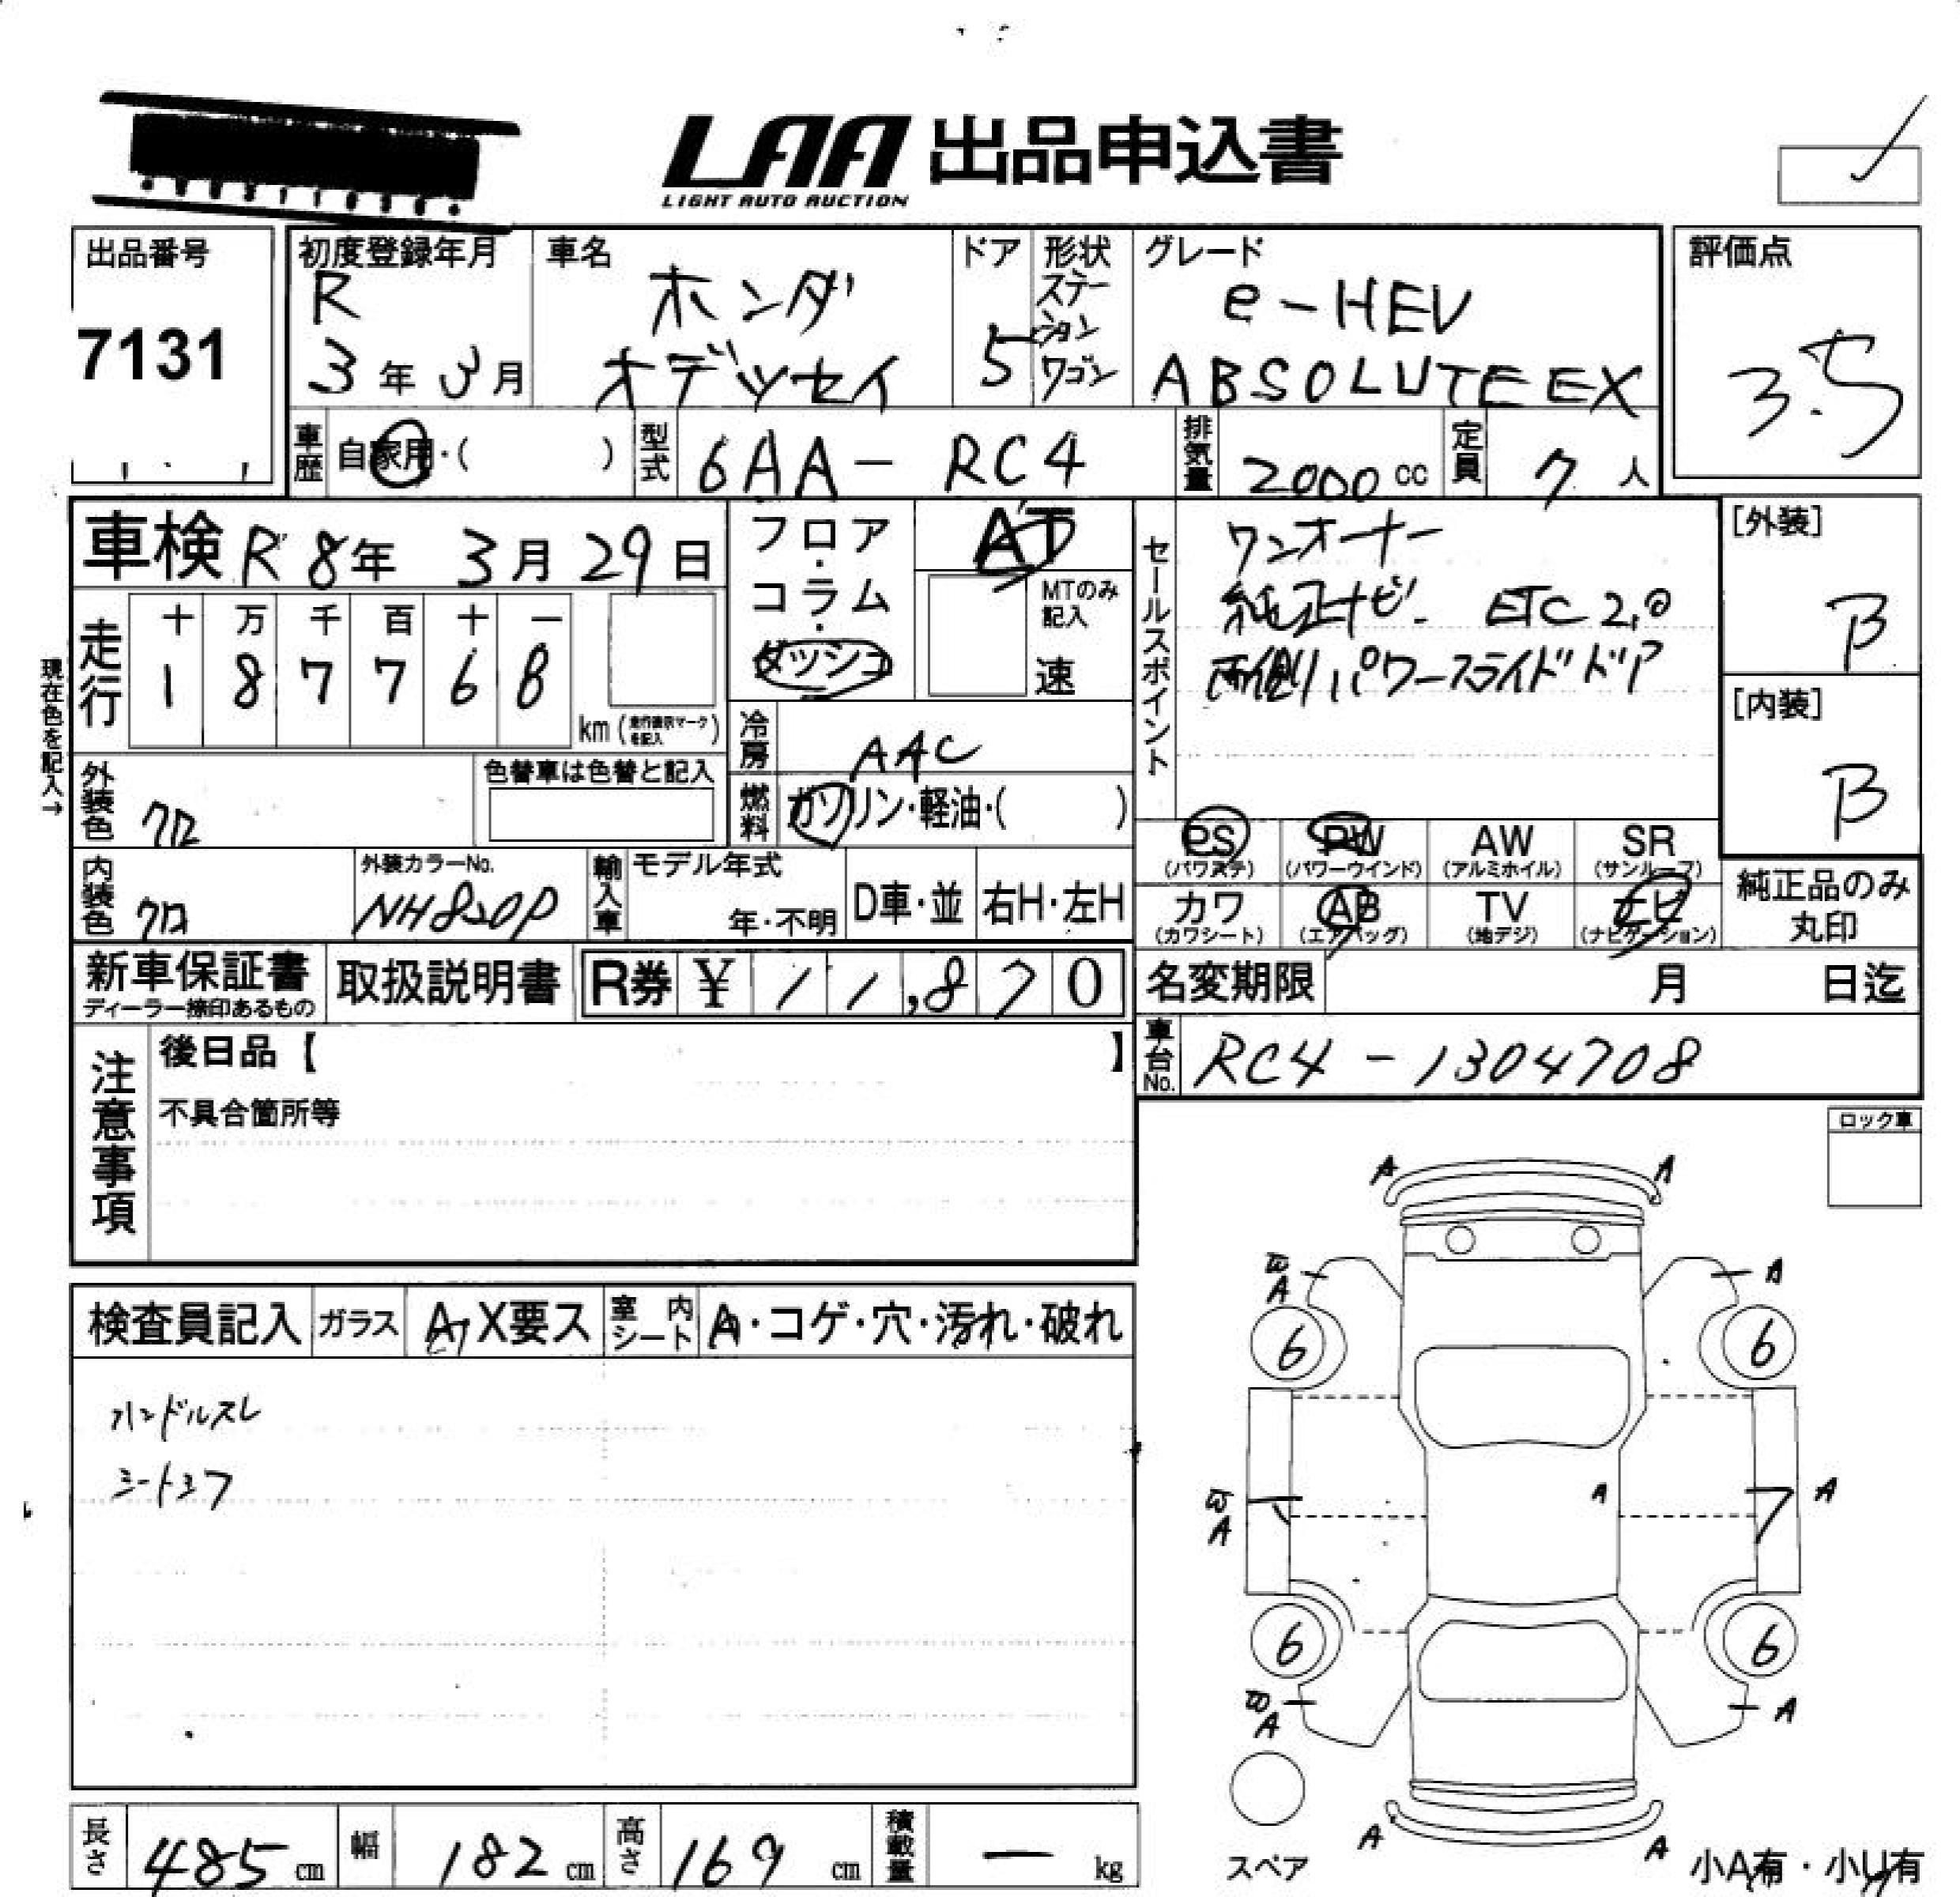 LAA 出品申込書
LIGHT AUTO AUCTION
出品番号
7131
初度登録年月
R
3年3月
車名
ホンダ
オデッセイ
ドア
5
形状
ステーションワゴン
グレード
e-HEV
ABSOLUTE EX
評価点
3.5
車歴 自家用・( )
型式 6AA-RC4
排気量 2000 cc
定員 7人
車検 R8年3月29日
フロア・コラム・ダッシュ
AT
MTのみ記入
速
セールスポイント
ワンオーナー
純正ナビ ETC2.0
両側パワースライドドア
[外装]
B
[内装]
B
現在色を記入→
走行
十 万 千 百 十 一
1 8 7 7 6 8
km (走行表示マークを記入)
冷房 AAC
燃料 ガソリン・軽油・( )
外装色 クロ
色替車は色替と記入
内装色 クロ
外装カラーNo.
NH820P
輸入車
モデル年式
年・不明
D車・並 右H・左H
PS (パワステ)
PW (パワーウインド)
AW (アルミホイル)
SR (サンルーフ)
カワ (カワシート)
AB (エアバッグ)
TV (地デジ)
ナビ (ナビゲーション)
純正品のみ
丸印
新車保証書
ディーラー捺印あるもの
取扱説明書
R券 ¥ 11,870
名変期限 月 日迄
車台No. RC4-1304708
注意事項
後日品【 】
不具合箇所等
ロック車
検査員記入
ガラス A・X要ス
室内シート A・コゲ・穴・汚れ・破れ
ハンドルスレ
シートシワ
A A
A A
6 6
A A A
6 6
A A
A A
スペア
小A有・小U有
長さ 485 cm
幅 182 cm
高さ 169 cm
積載量 ー kg